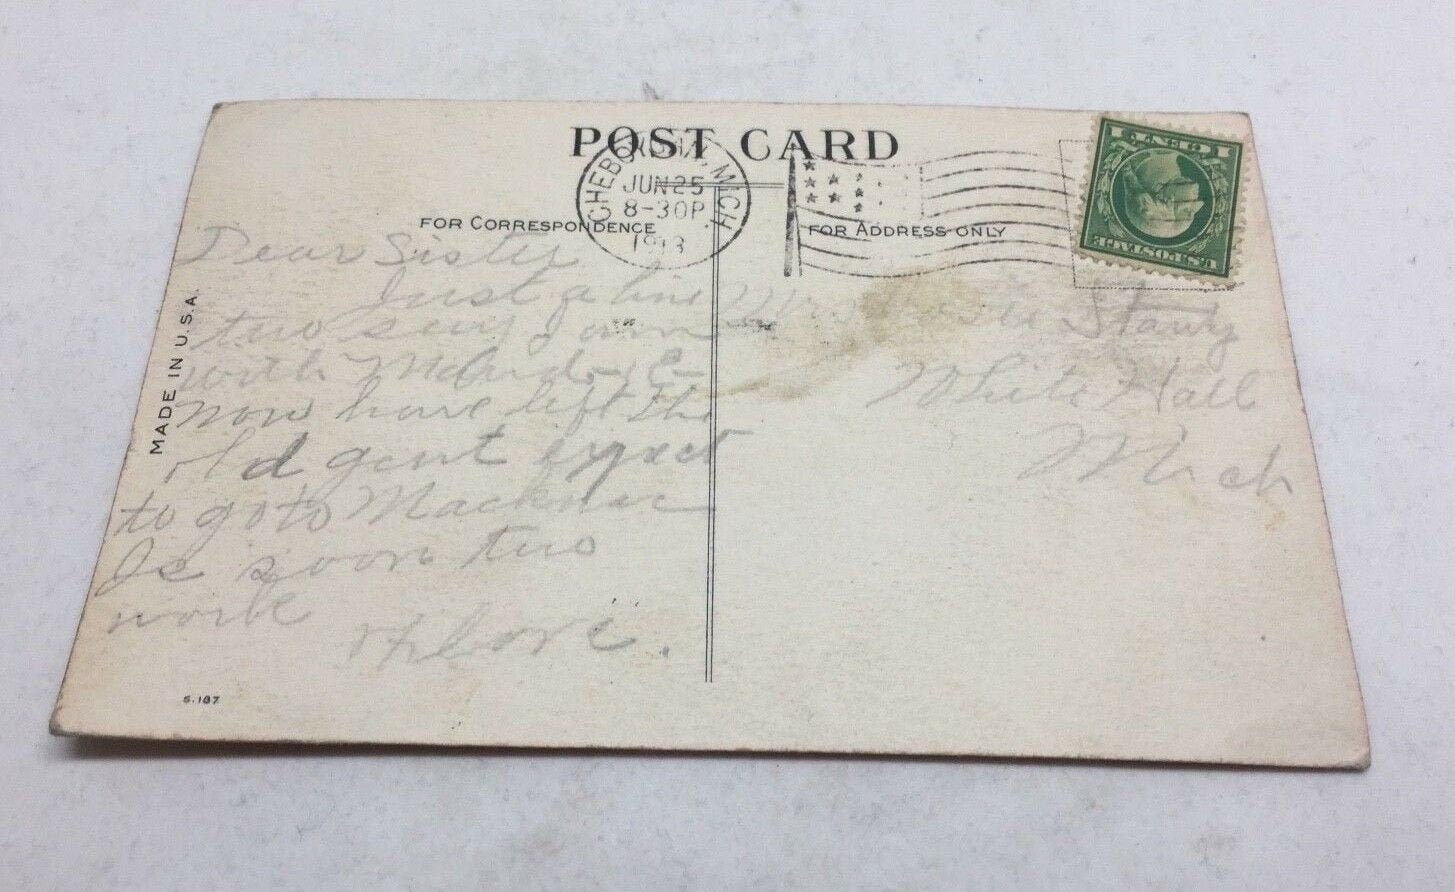 POST CARD
CHEBOYGAN, MICH.
JUN 25
8-30P
1913
1 CENT 1
U.S. POSTAGE
FOR CORRESPONDENCE
FOR ADDRESS ONLY
MADE IN U.S.A.
Dear Sister
Just a line
two say I am
with
now have left the
old gent expect
to go to Mackinac
Is soon two
work
Stany
White Hall
Mich
S.187